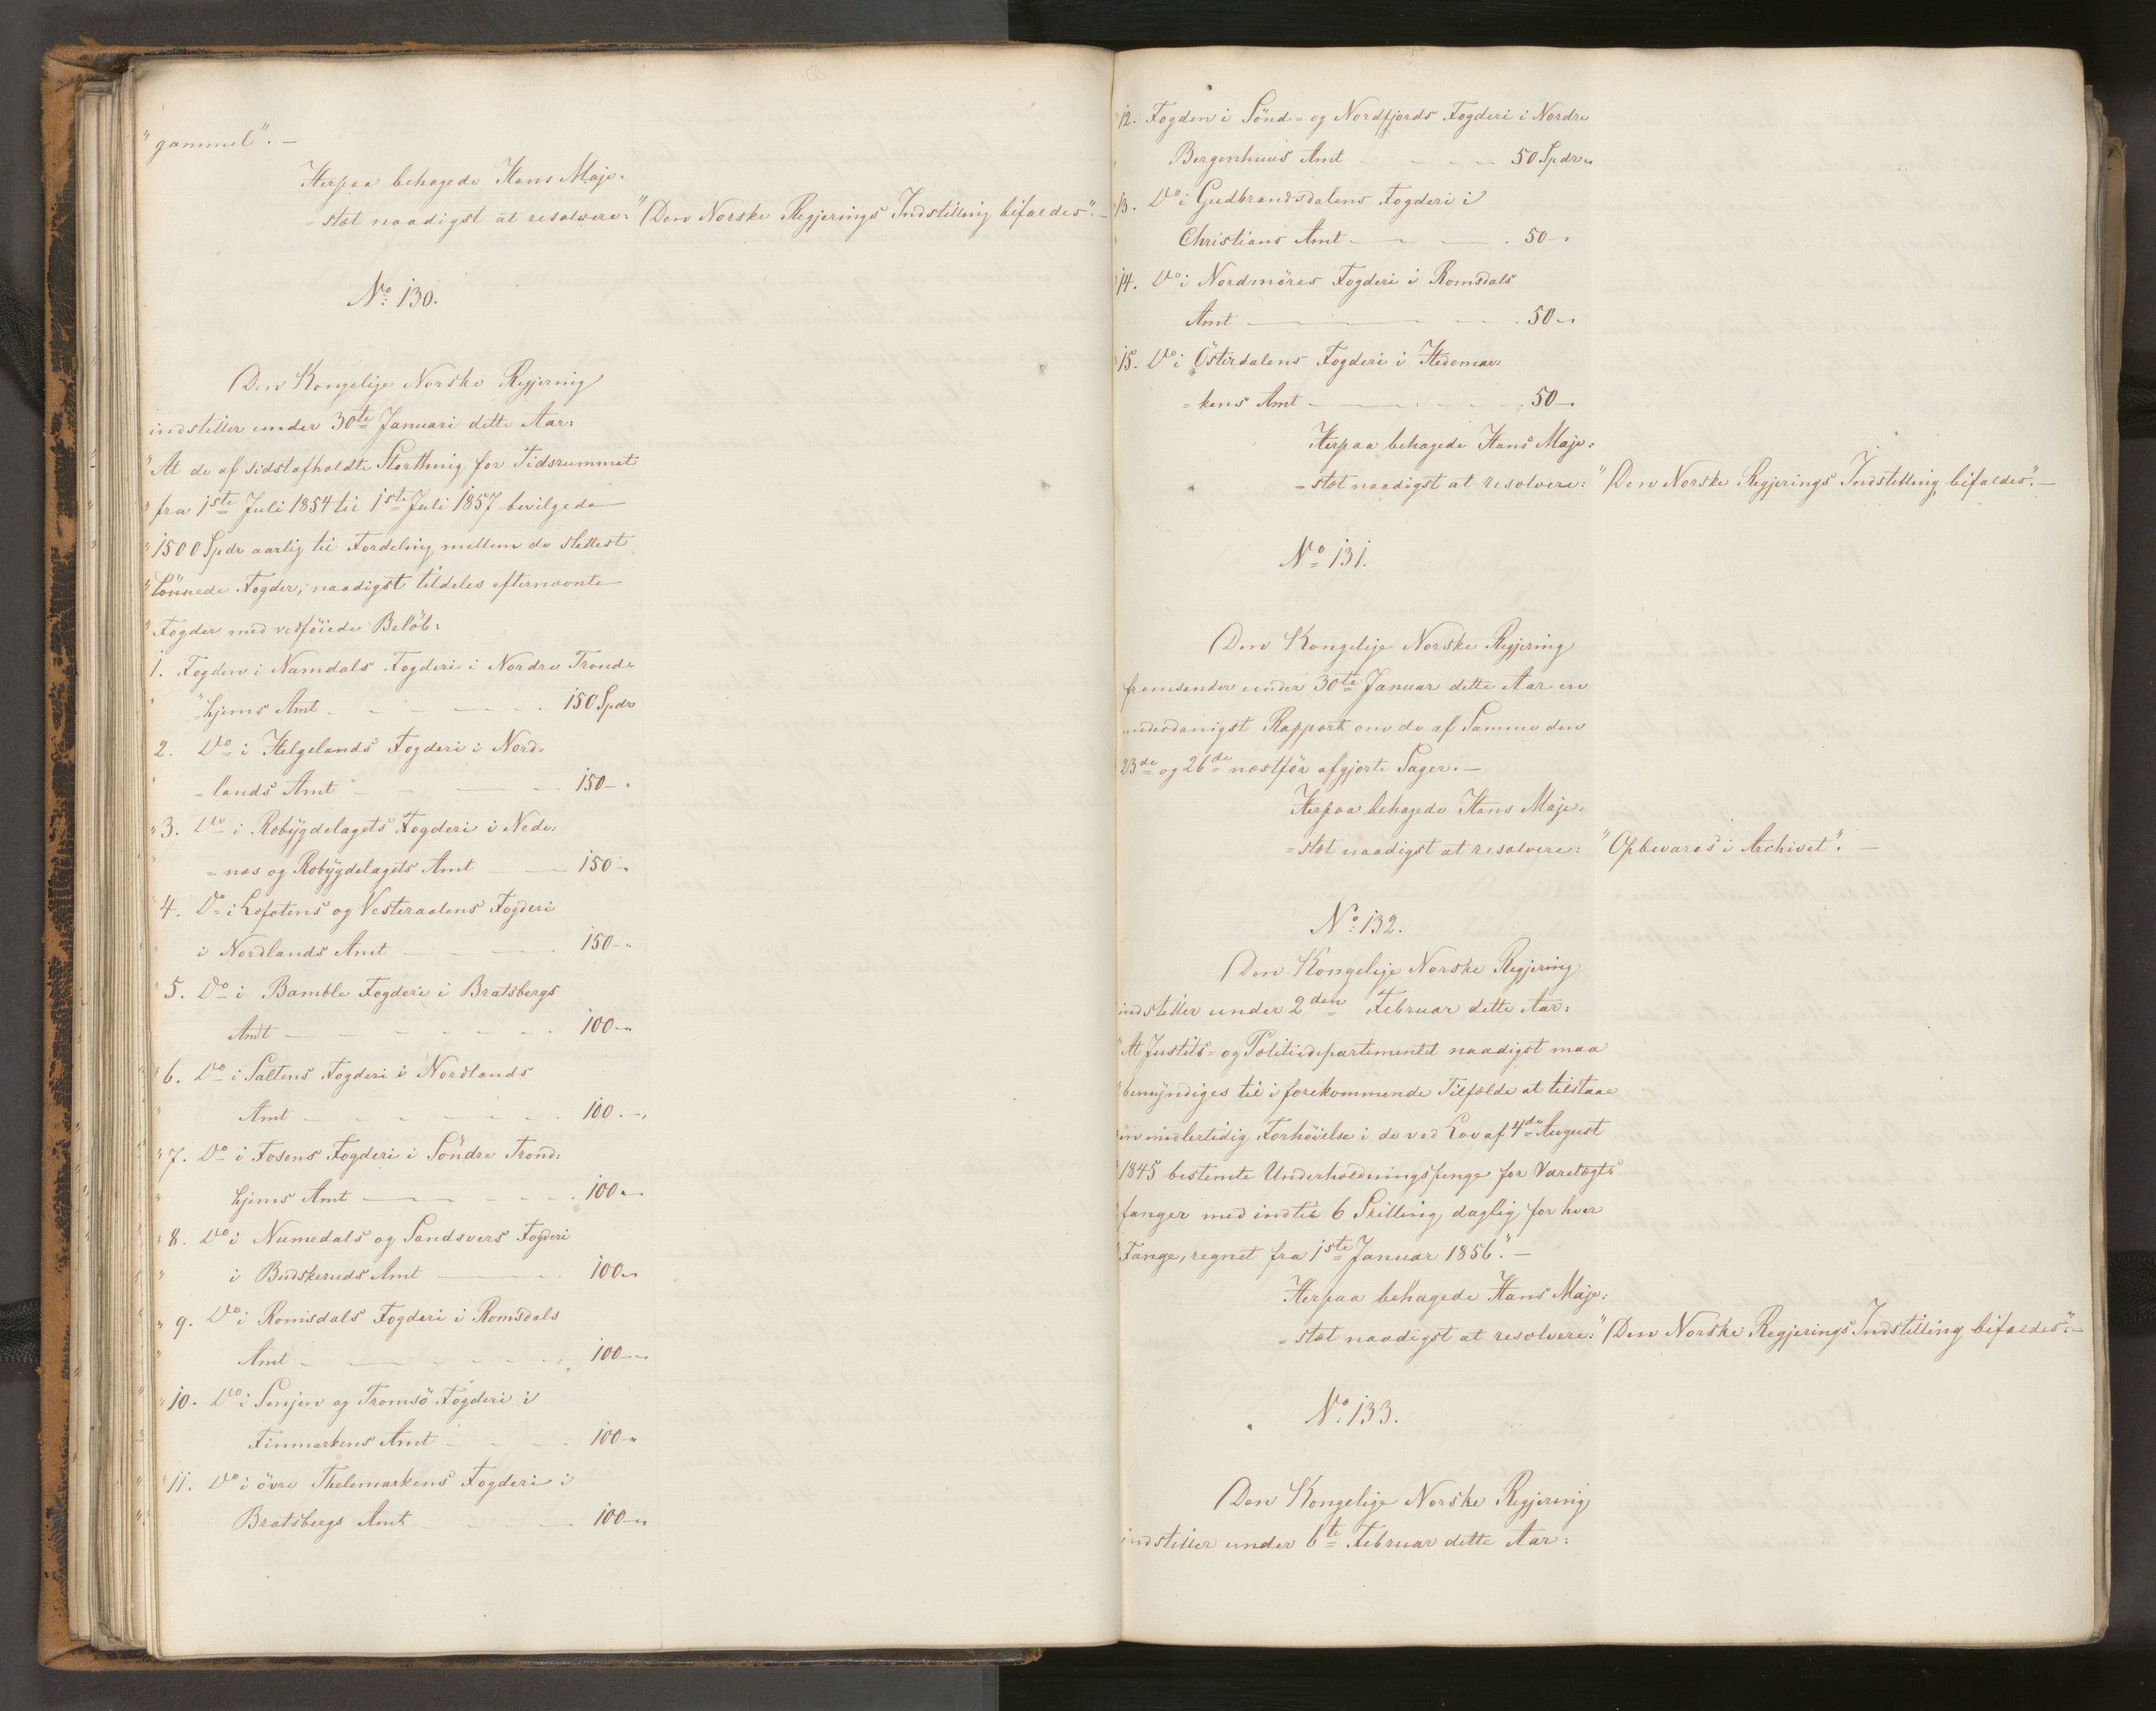 "gammel". —
Herpaa behagede Hans Maje-
=stæt naadigst at resolvere: "Den Norske Regjerings Indstilling bifaldes". —
No. 130.
Den Kongelige Norske Regjering
indstiller under 30te Januari dette Aar:
"At de af sidstafholdte Storthing for Tidsrummet
"fra 1ste Juli 1854 til 1ste Juli 1857 bevilgede
"1500 Spdr aarlig til Fordeling mellem de slettest
"lönnede Fogder, naadigst tildeles efternævnte
"Fogder med vedföiede Belöb:
1. Fogden i Namdals Fogderi i Nordre Trond-
"=hjems Amt - - - 150 Spdr
2. Do i Helgelands Fogderi i Nord-
" =lands Amt - - - 150 - "
"3. Do i Robygdelagets Fogderi i Nede-
" =næs og Robygdelagets Amt — 150 - "
"4. Do i Lofotens og Vesteraalens Fogderi
" i Nordlands Amt - - - 150 - "
"5. Do i Bamble Fogderi i Bratsbergs
Amt - - - 100 - "
"6. Do i Saltens Fogderi i Nordlands
" Amt - - - 100 - "
"7. Do i Fosens Fogderi i Söndre Trond-
" hjems Amt - - - 100 - "
"8. Do i Numedals og Sandsvers Fogderi
" i Budskeruds Amt — 100 - "
"9. Do i Romsdals Fogderi i Romsdals
" Amt - - - 100 - "
"10. Do i Senjen og Tromsö Fogderi i
Finmarkens Amt - - - 100 - "
"11. Do i övre Thelemarkens Fogderi i
" Bratsbergs Amt - - - 100 - "
"12. Fogden i Sönd- og Nordfjords Fogderi i Nordre
" Bergenhuus Amt - - - 50 Spdr "
"13. Do i Gudbrandsdalens Fogderi i
" Christians Amt - - - 50 - "
"14. Do i Nordmöres Fogderi i Romsdals
Amt - - - 50 - "
"15. Do i Österdalens Fogderi i Hedemar-
=kens Amt - - - 50 -
Herpaa behagede Hans Maje-
=stæt naadigst at resolvere: "Den Norske Regjerings Indstilling bifaldes". —
No. 131.
Den Kongelige Norske Regjering
fremsender under 30te Januar dette Aar en
underdanigst Rapport om de af Samme den
23de og 26de næstför afgjorte Sager. —
Herpaa behagede Hans Maje-
=stæt naadigst at resolvere: "Opbevares i Archivet". —
No. 132.
Den Kongelige Norske Regjering
indstiller under 2den Februar dette Aar:
"At Justits- og Politidepartementet naadigst maa
"bemyndiges til i forekommende Tilfælde at tilstaae
"en midlertidig Forhöielse i de ved Lov af 4de August
"1845 bestemte Underholdningspenge for Varetægts
"fanger med indtil 6 Skilling daglig for hver
"Fange, regnet fra 1ste Januar 1856." —
Herpaa behagede Hans Maje-
=stæt naadigst at resolvere: "Den Norske Regjerings Indstilling bifaldes". —
No. 133.
Den Kongelige Norske Regjering
indstiller under 6te Februar dette Aar: